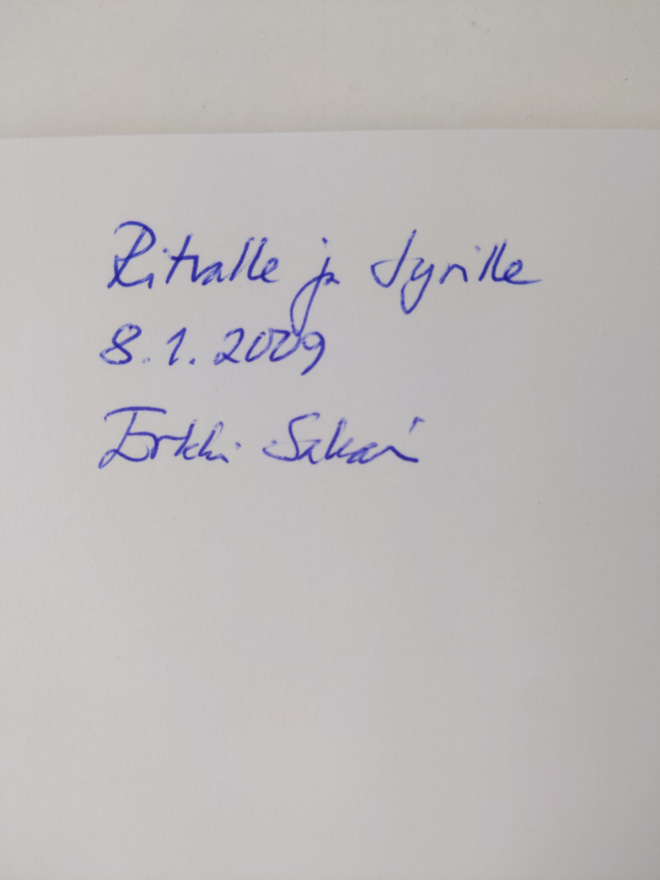 Ritvalle ja Jyrille
8.1.2009
Erkki Sakari